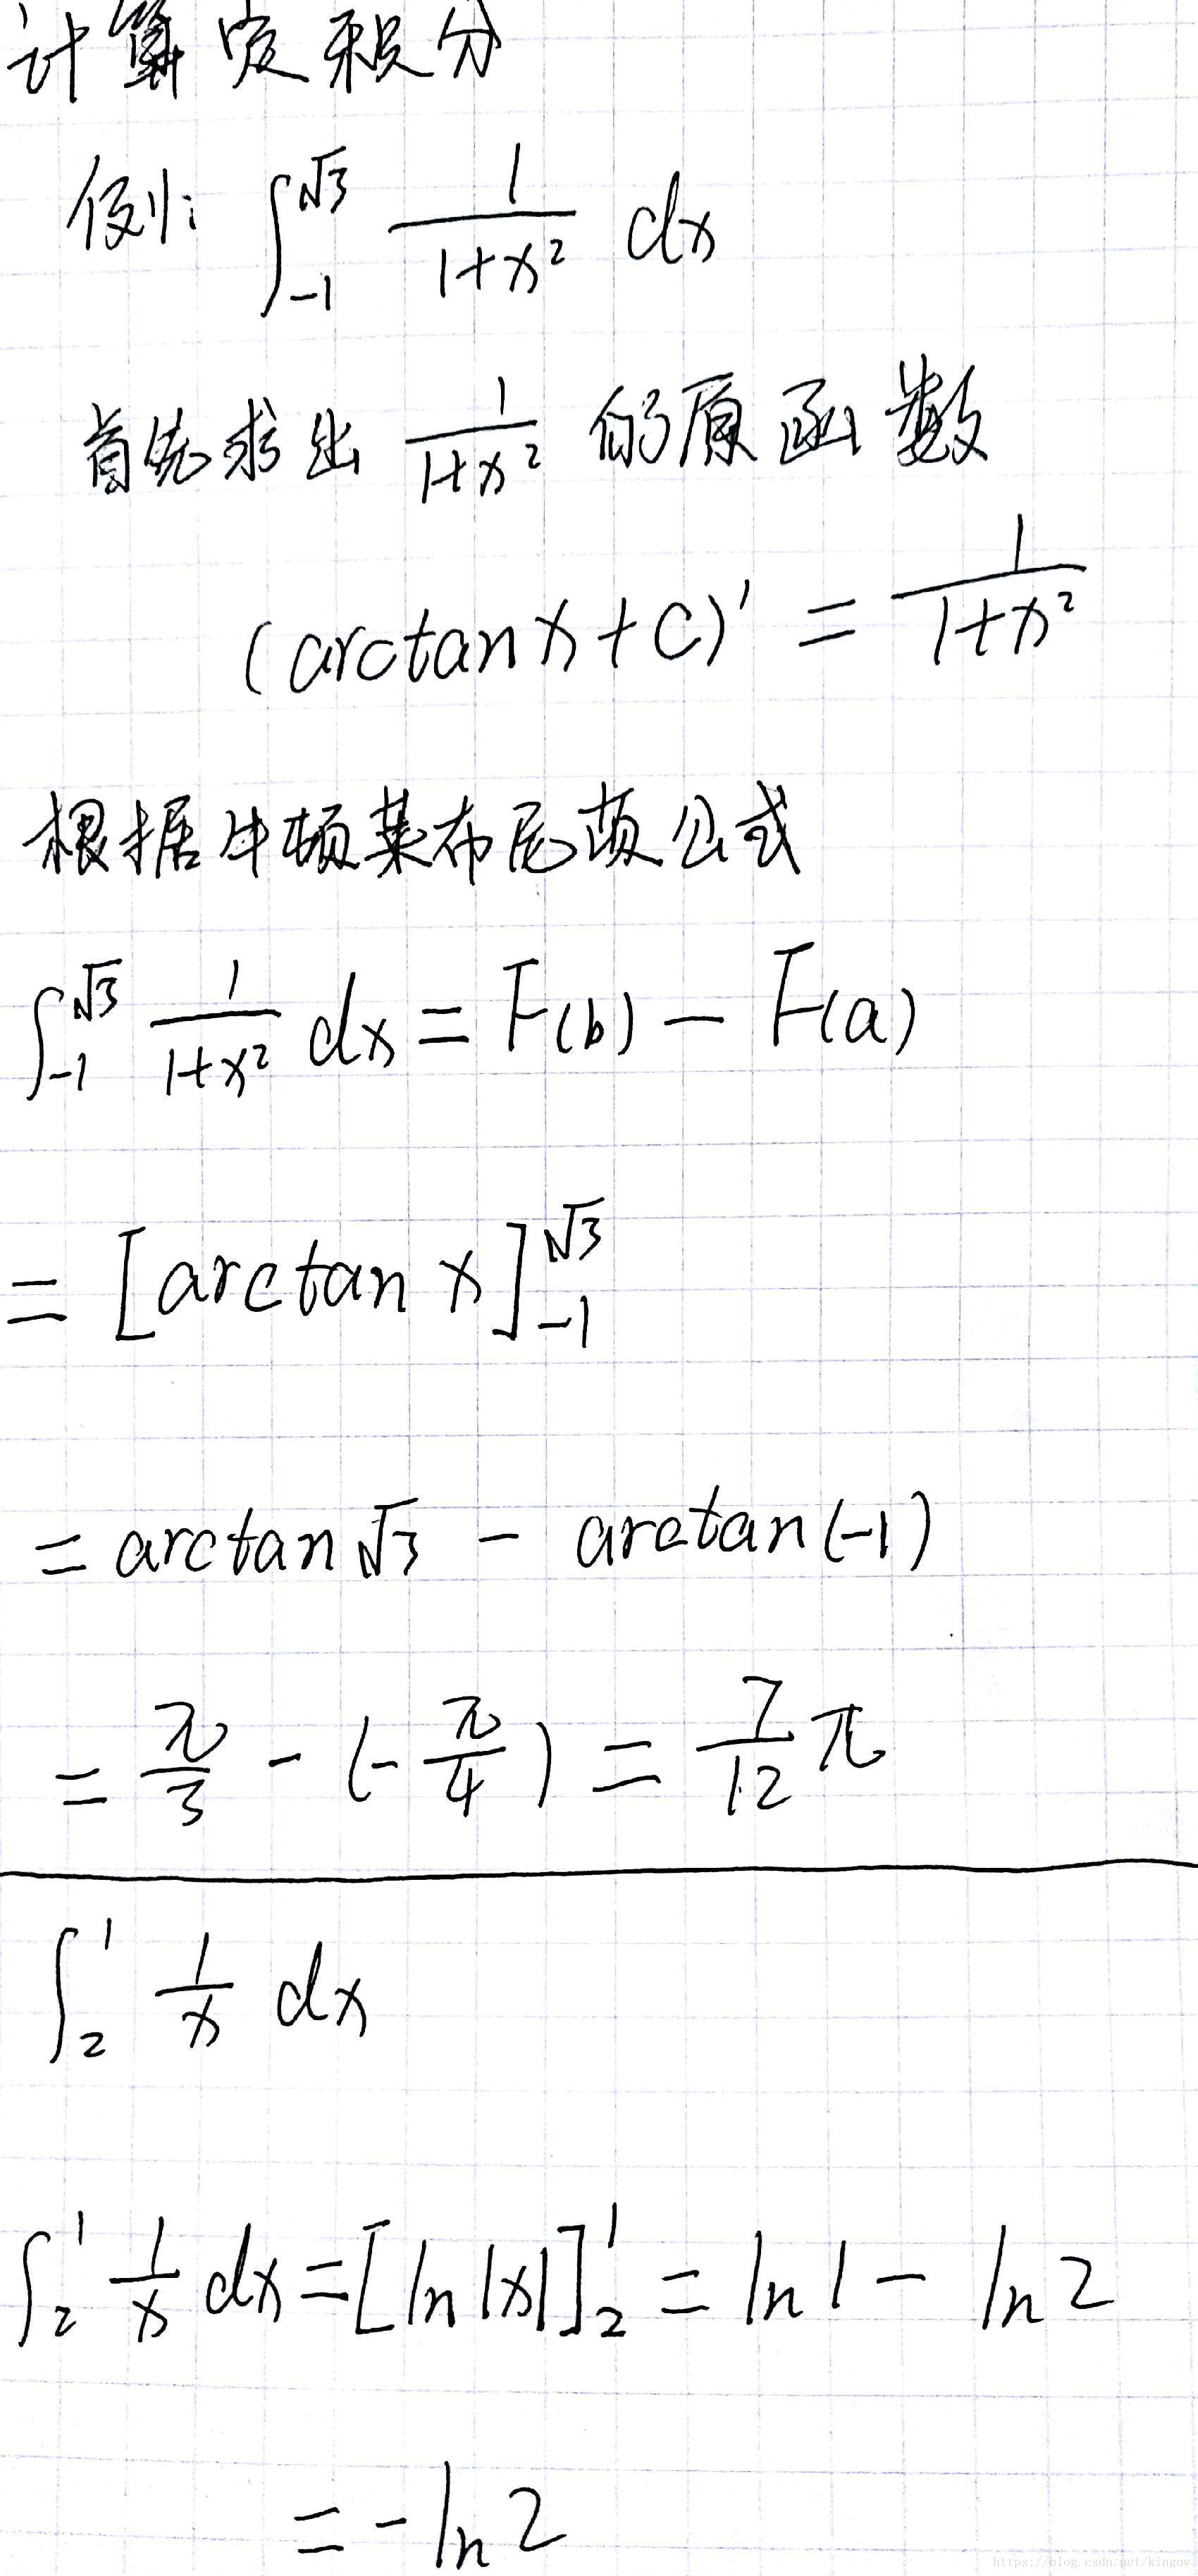 计算定积分
例: ∫_{-1}^{√3} \frac{1}{1+x²} dx
首先求出 \frac{1}{1+x²} 的原函数
(arctan x + C)' = \frac{1}{1+x²}
根据牛顿莱布尼顿公式
∫_{-1}^{√3} \frac{1}{1+x²} dx = F(b) − F(a)
= [arctan x]_{-1}^{√3}
= arctan √3 − arctan(-1)
= \frac{π}{3} − (−\frac{π}{4}) = \frac{7}{12} π
∫_{2}^{1} \frac{1}{x} dx
∫_{2}^{1} \frac{1}{x} dx = [ln |x|]_{2}^{1} = ln 1 − ln 2
= − ln 2